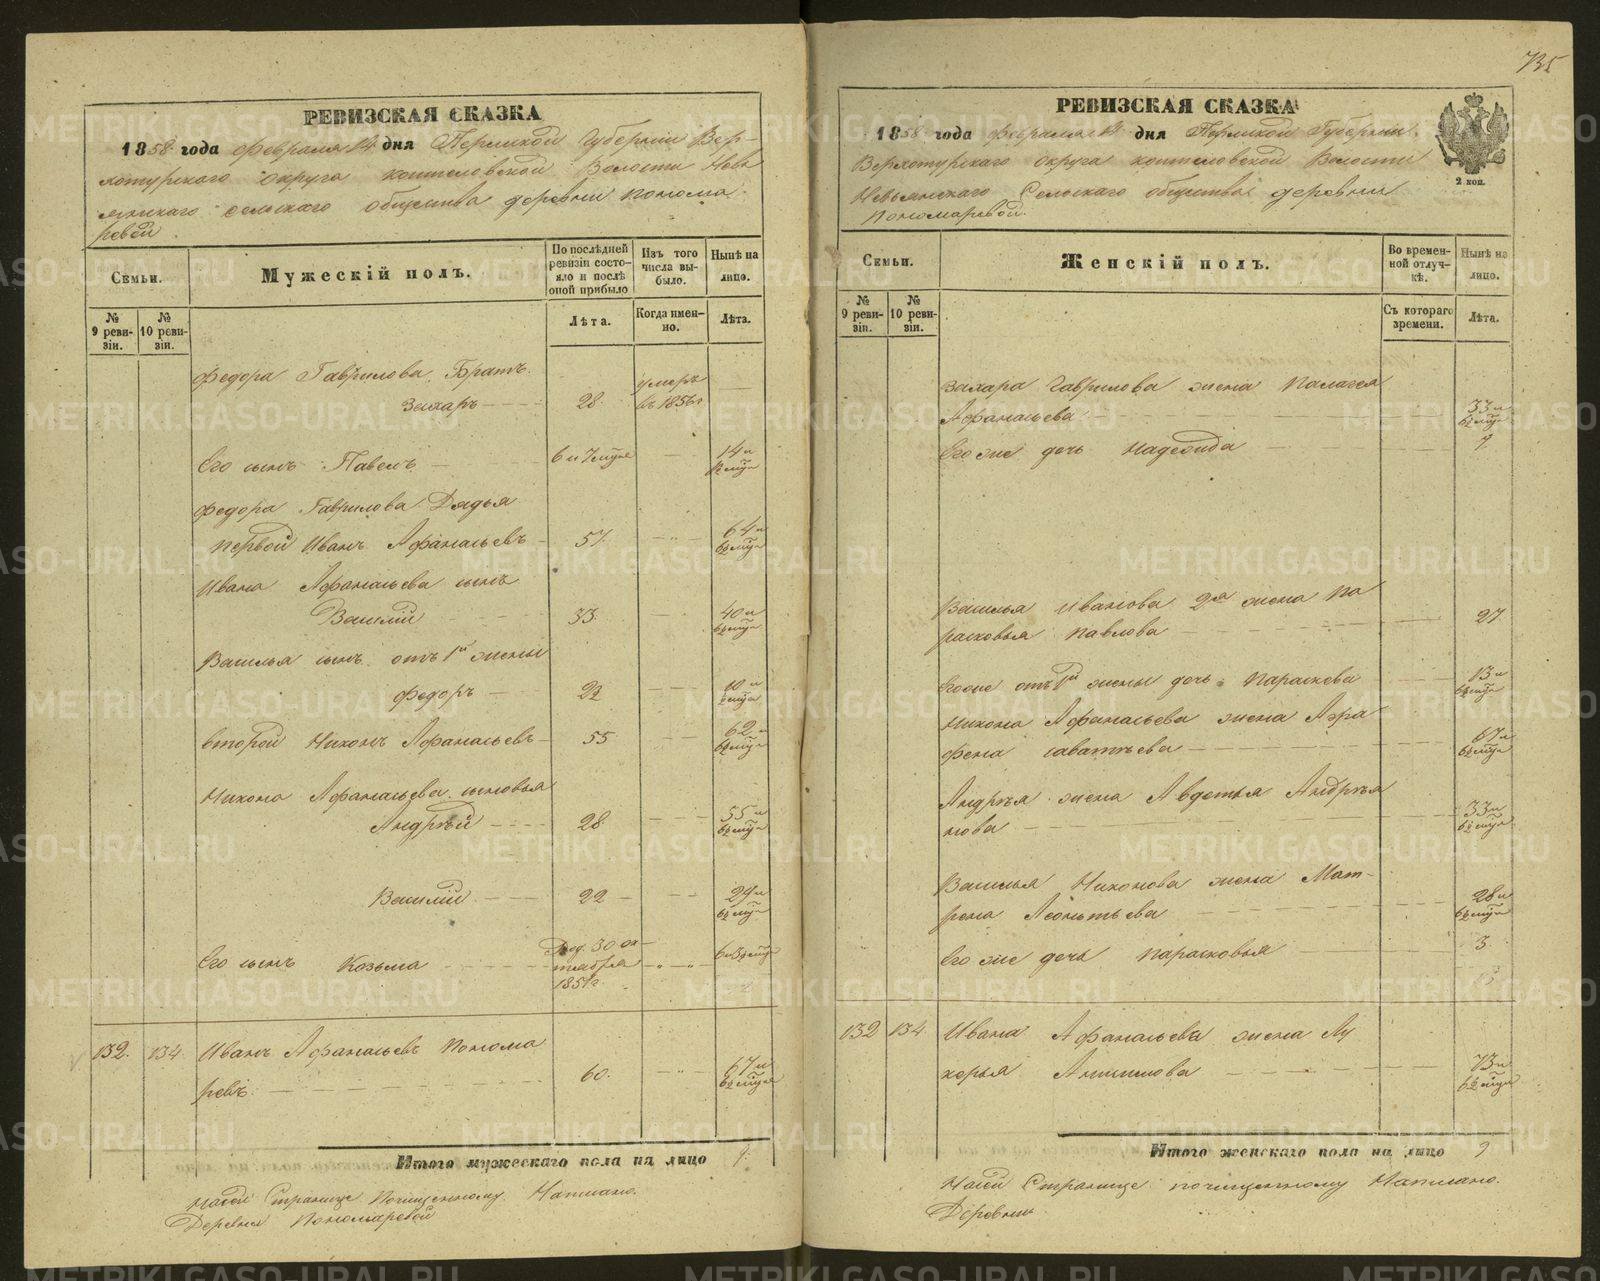 735
РЕВИЗСКАЯ СКАЗКА
1858 года февраля 14 дня Пермской Губернии Вер-
хотурского округа Волости Невь
янского сельского общества деревни понома
ревой.
Семьи.
Мужескій полъ.
По послѣдней ревизіи состояло и послѣ оной прибыло
Изъ того числа выбыло.
Нынѣ на лицо.
№ 9 ревизіи.
№ 10 ревизіи.
Лѣта.
Когда именно.
Лѣта.
Федора Гаврилова Братъ
Захаръ 28 умеръ въ 1856 г
Его сынъ Павелъ 6 и 7 14 и
Федора Гаврилова Дядья
первой Иванъ Афанасьевъ 57 64 и
Ивана Афанасьева сынъ
Василий 33. 40 и
Василья сынъ отъ 1й жены
Федоръ
второй Никонъ Афанасьевъ 55 62
Никона Афанасьева сыновья
Андрѣй 28
Василий 22 29 и
Его сынъ Козьма 30 октября 1851 г.
132. 134. Иванъ Афанасьевъ Понома
ревъ. 60. 67 и
Итого мужескаго пола на лицо 9.
Деревня Пономаревой
РЕВИЗСКАЯ СКАЗКА
1858 года февраля 14 дня Пермской Губернии
Верхотурского округа Волости
Невьянского Сельского общества деревни
пономаревой.
2 коп.
Семьи.
Женскій полъ.
Во временной отлучкѣ.
Нынѣ на лицо.
№ 9 ревизіи.
№ 10 ревизіи.
Съ котораго времени.
Лѣта.
Захара Гаврилова жена Палагея
Афанасьева 33 и
Его же дочь Надежда 9
Василья Иванова 2я жена Па
расковья Павлова 27
Его же отъ 1й жены дочь Параскева 13 и
Никона Афанасьева жена Агра
фена Саватѣева 67 и
Андрѣя жена Авдотья Андрѣя
нова 33 и
Василья Никонова жена Мат-
рена Леонтьева 28 и
Его же дочь парасковья 3
132 134. Ивана Афанасьева жена Лу
керья Анисимова 73 и
Итого женскаго пола на лицо 9
Деревни
METRIKI.GASO-URAL.RU